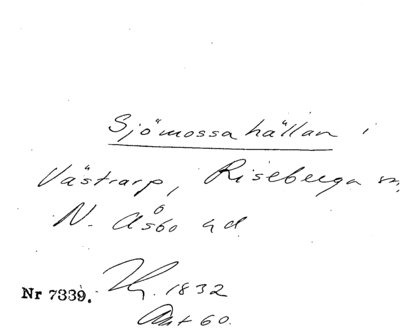 Sjömossahällan i
Västrarp, Riseberga sn,
N. Åsbo hd.
Nr 7339. Thg. 1832
Ant 60.